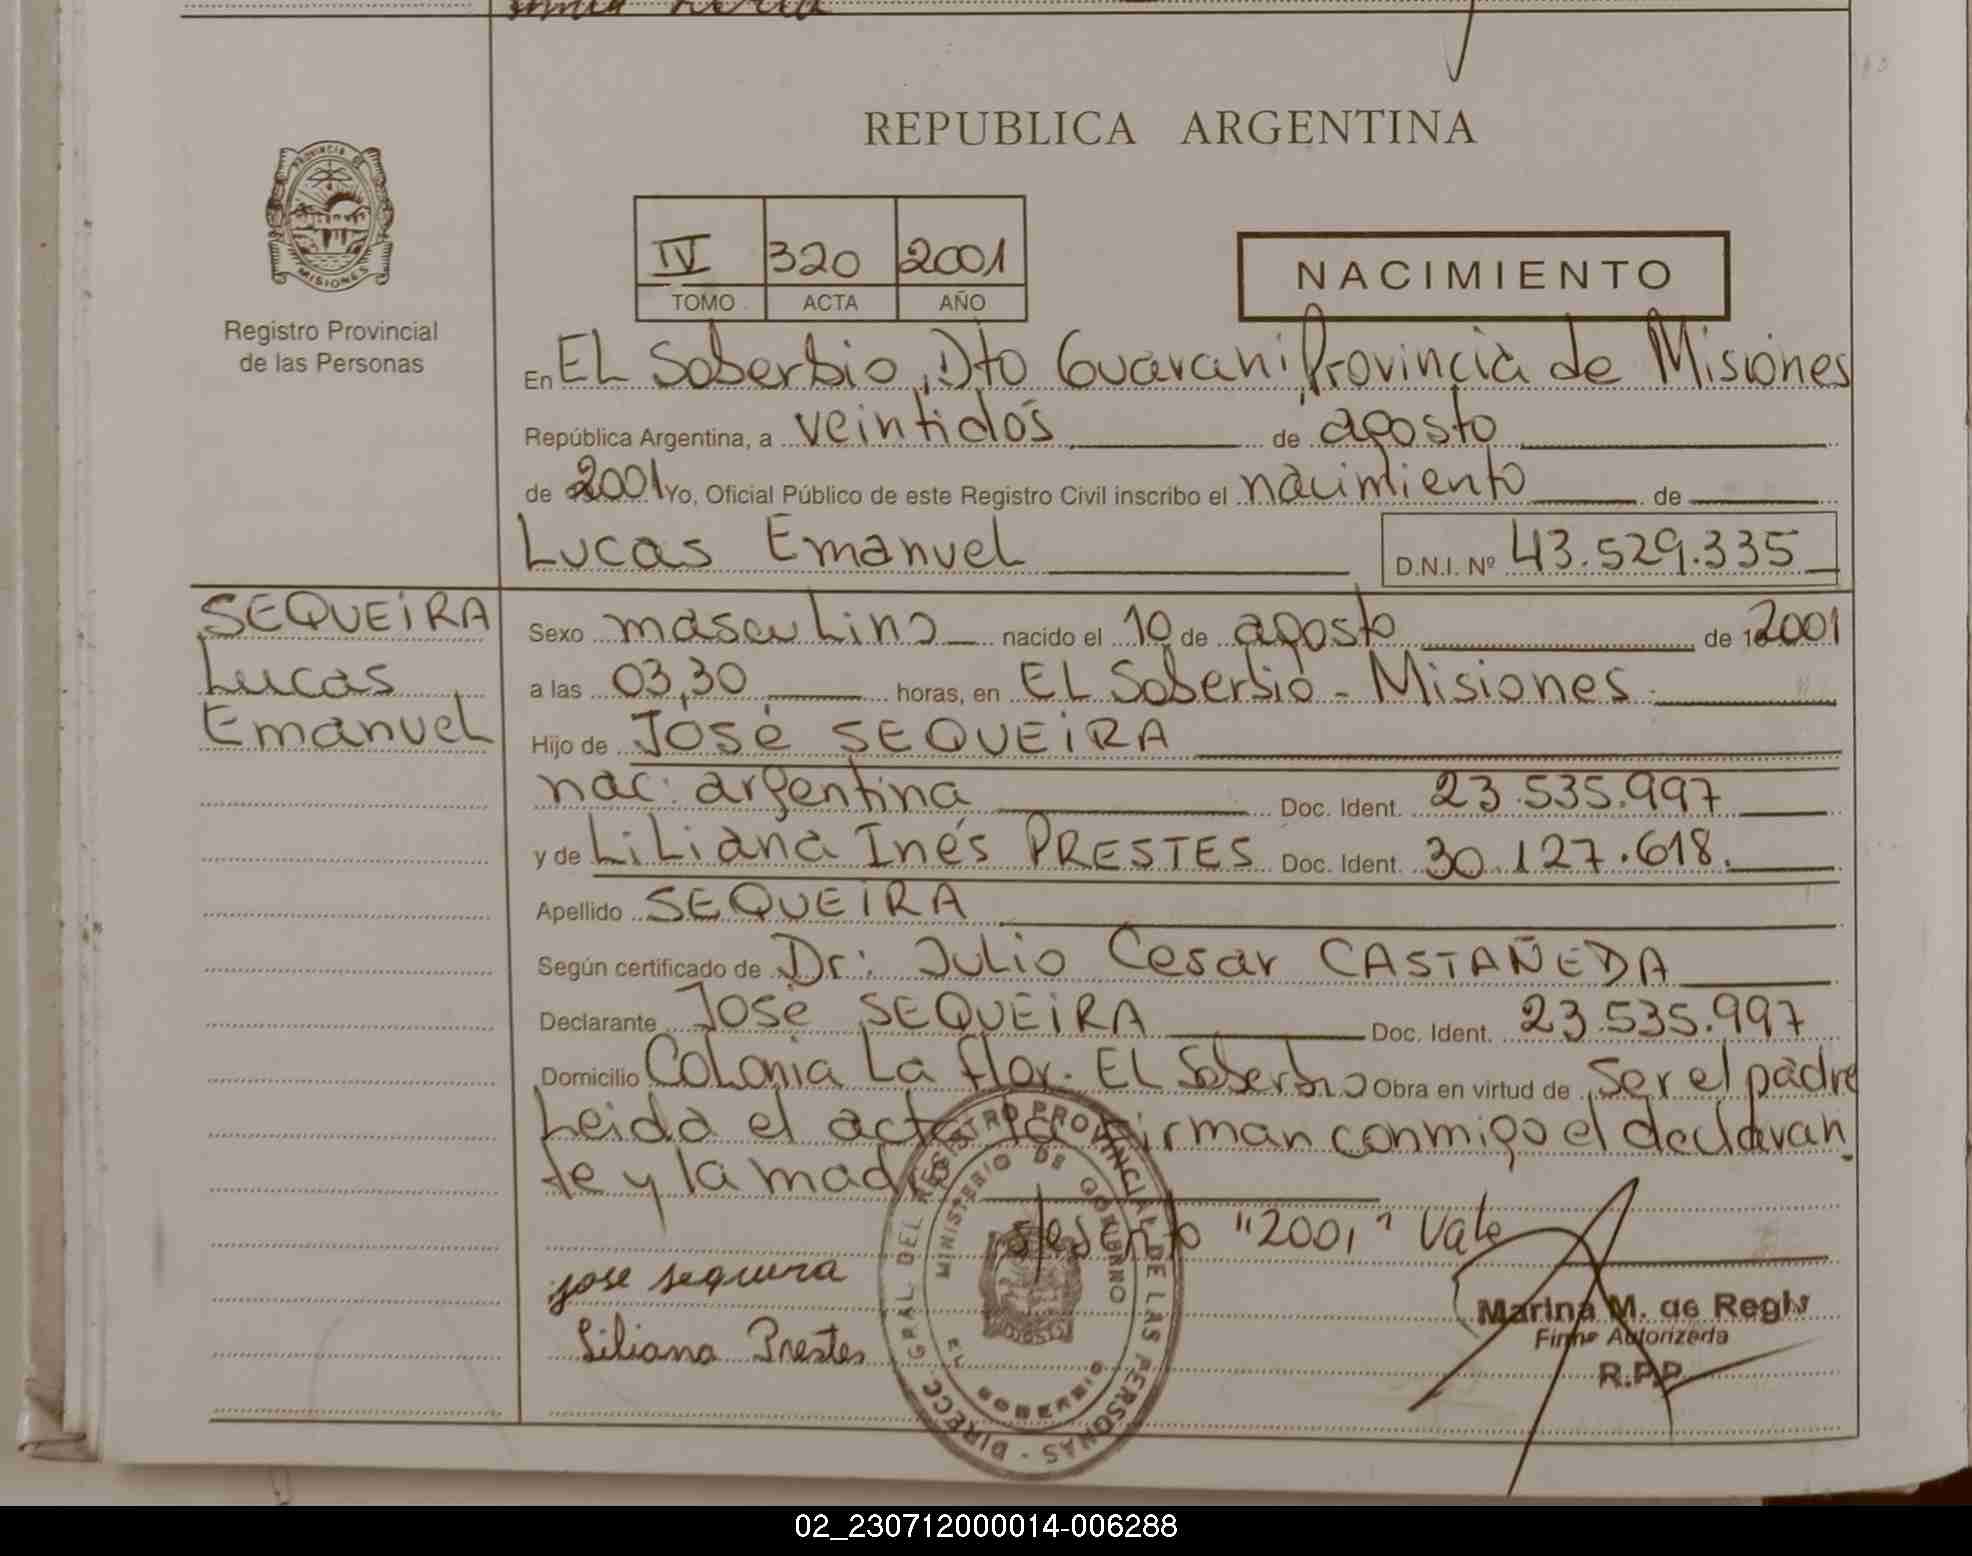 REPUBLICA ARGENTINA
PROVINCIA DE
MISIONES
Registro Provincial
de las Personas
IV 320 2001
TOMO ACTA AÑO
NACIMIENTO
En EL Soberbio, Dto Guaraní Provincia de Misiones
República Argentina, a veintidós de agosto
de 2001 Yo, Oficial Público de este Registro Civil inscribo el nacimiento de
Lucas Emanuel D.N.I. Nº 43.529.335
SEQUEIRA
Lucas
Emanuel
Sexo masculino nacido el 10 de agosto de 2001
a las 03,30 horas, en EL Soberbio - Misiones
Hijo de José SEQUEIRA
nac: argentina Doc. Ident. 23.535.997
y de LiLiana Inés PRESTES Doc. Ident. 30.127.618.
Apellido SEQUEIRA
Según certificado de Dr: Julio Cesar CASTAÑEDA
Declarante José SEQUEIRA Doc. Ident. 23.535.997
Domicilio Colonia La flor. EL Soberbio Obra en virtud de ser el padre
Leida el acta la firman conmigo el declaran
te y la madre
"2001" Vale
jose sequeira
Liliana Prestes
DIRECC. GRAL. DEL REGISTRO PROVINCIAL DE LAS PERSONAS -
MINISTERIO DE GOBIERNO
EL SOBERBIO
Marina M. de Regis
Firma Autorizada
R.P.P.
02_230712000014-006288